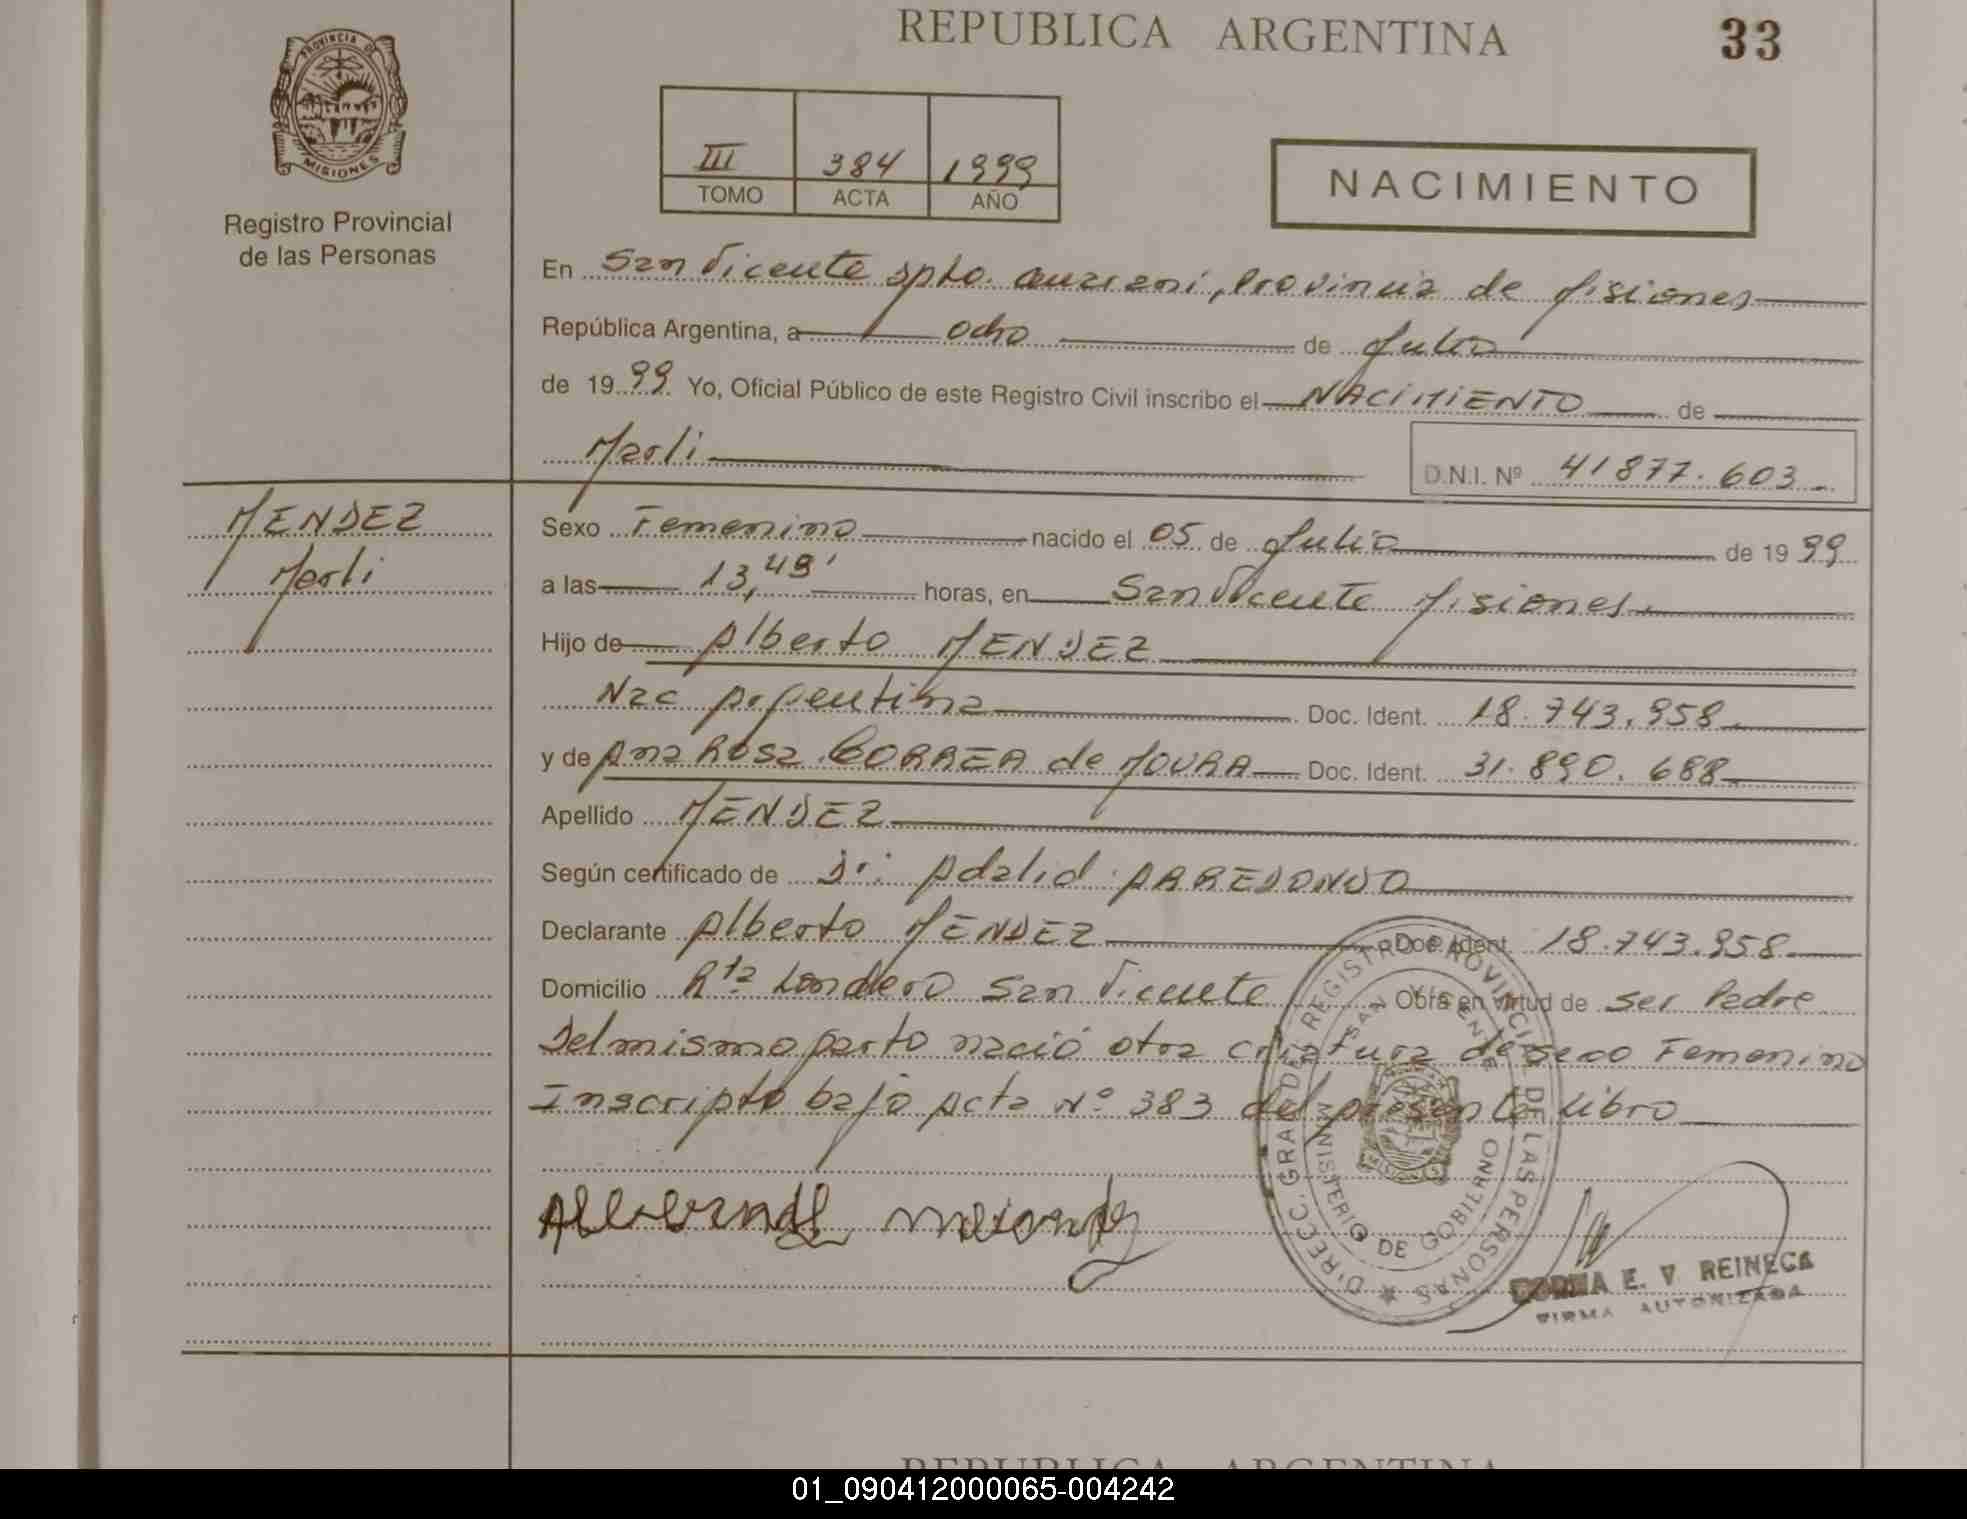 REPUBLICA ARGENTINA
33
PROVINCIA DE
MISIONES
Registro Provincial
de las Personas
III 384 1999
TOMO ACTA AÑO
NACIMIENTO
En San Vicente Dpto. Guarani, Provincia de Misiones
República Argentina, a ocho de Julio
de 1999 Yo, Oficial Público de este Registro Civil inscribo el NACIMIENTO de
Marli
D.N.I. Nº 41877.603
MENDEZ
Marli
Sexo Femenino nacido el 05 de Julio de 1999
a las 13,49' horas, en San Vicente Misiones.
Hijo de Alberto MENDEZ
Nac Argentina Doc. Ident. 18.743.958
y de Ana Rosa CORREA de MOURA Doc. Ident. 31.890.688
Apellido MENDEZ
Según certificado de Dr: Adalid ARREDONDO
Declarante Alberto MENDEZ Doc. Ident. 18.743.958
Domicilio Rta Londero San Vicente Obra en virtud de ser Padre
Del mismo parto nació otra criatura de sexo Femenino
Inscripto bajo Acta Nº 383 del presente Libro
DIRECC. GRAL DEL REGISTRO PROVINCIAL DE LAS PERSONAS
SAN VICENTE
MINISTERIO DE GOBIERNO
MISIONES
E. V. REINECK
FIRMA AUTORIZADA
REPUBLICA ARGENTINA
01_090412000065-004242